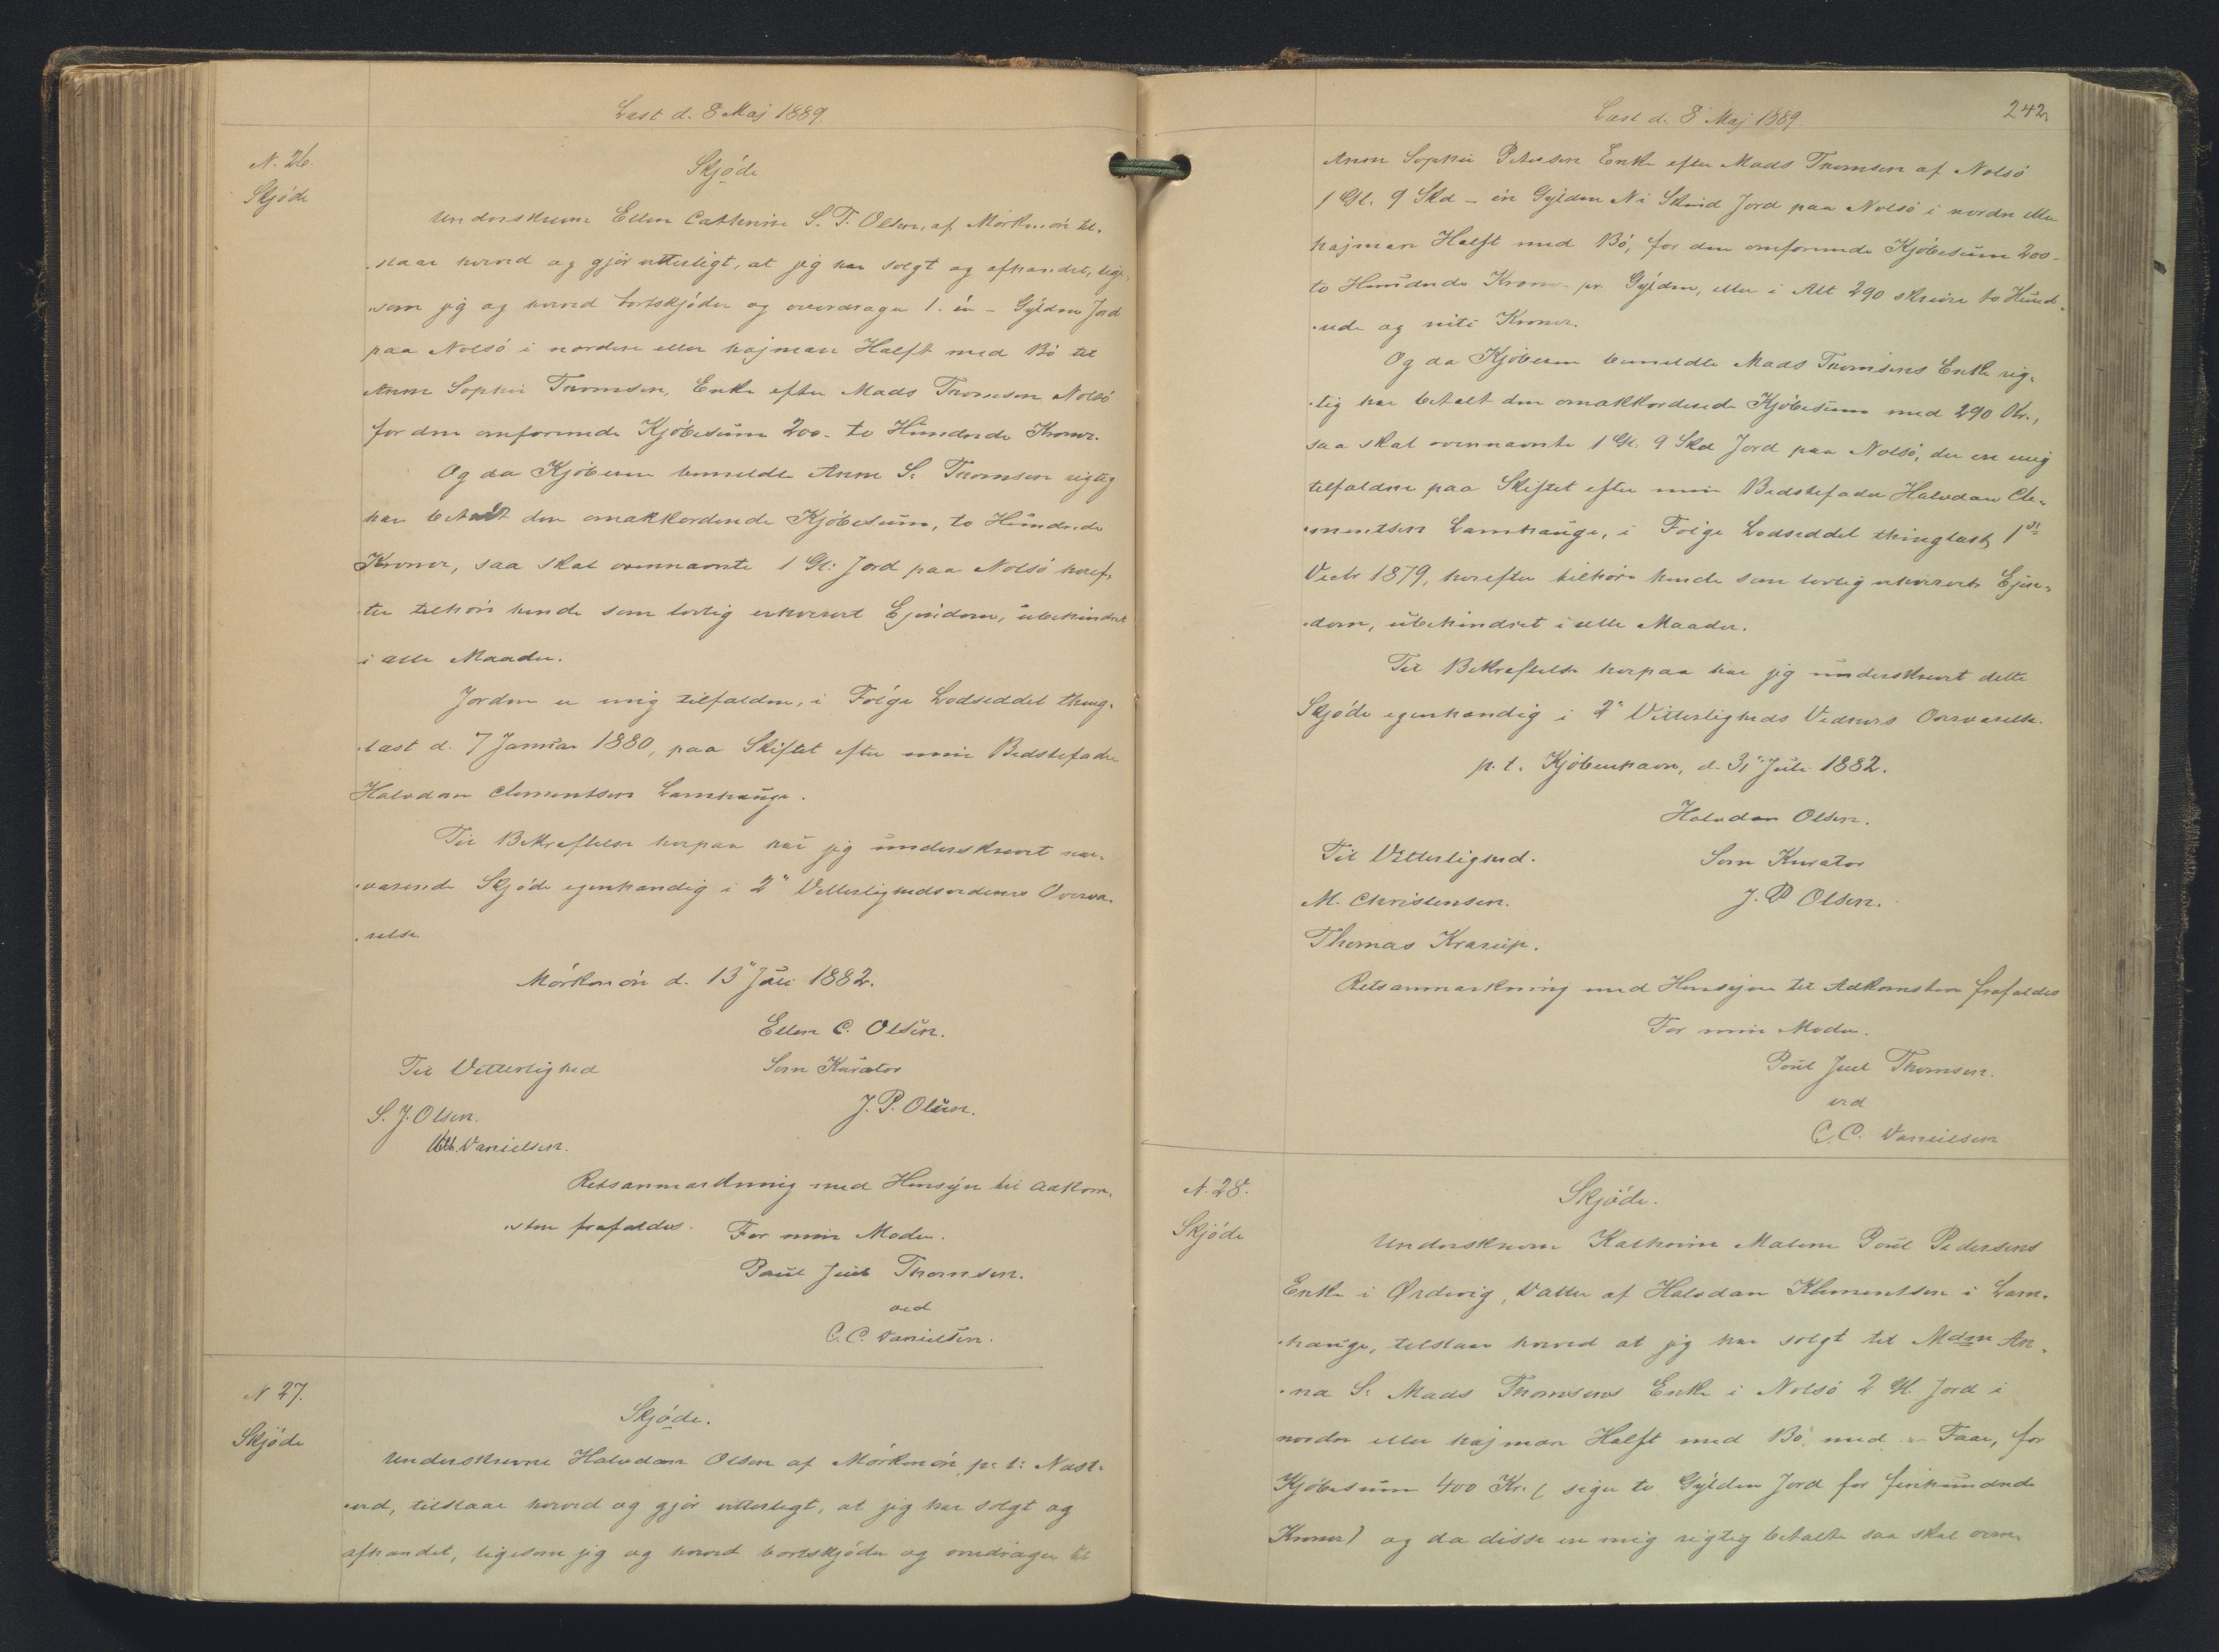 Læst d. 8 Maj 1889.
N. 26.
Skjöde
Skjöde
Underskrevne Ellen Cathrine S. F. Olsen, af Mörkmöre til-
staar herved og gjör vitterligt, at jeg har solgt og afhændet, lige-
som jeg og herved bortskjöder og overdrager 1. én - Gylden Jord
paa Nolsö i nordre eller højmare Halft med Bö til
Anne Sophie Thomsen, Enke efter Mads Thomsen Nolsö
for den omforenede Kjöbesum 200 - to Hundrede Kroner.
Og da Kjöberen bemeldte Anne S. Thomsen rigtig
har betalt den omakkorderede Kjöbesum, to Hundrede
Kroner, saa skal ovennævnte 1 Gl: Jord paa Nolsö heref-
ter tilhöre hende som lovlig erhvervet Ejendom, ubehindret
i alle Maader.
Jorden er mig tilfalden, i Fölge Lodseddel thing-
læst d. 7 Januar 1880, paa Skiftet efter min Bedstefader
Halvdan Clementsen Lamhauge.
Til Bekræftelse herpaa har jeg underskrevet nær-
værende Skjöde egenhændig i 2" Vitterlighedsvidners Overvæ-
relse
Mörkmöre d. 13" Juli 1882.
Ellen C. Olsen.
Til Vitterlighed
Som Kurator
S. J. Olsen.
J. P. Olsen.
Danielsen.
Retsanmærkning med Hensyn til Adkom-
sten frafaldes.
For min Moder.
Poul Juul Thomsen.
ved
C. C. Danielsen.
N 27.
Skjöde
Skjöde.
Underskrevne Halvdan Olsen af Mörkmöre, p. t: Næst-
ved, tilstaar herved og gjör vitterligt, at jeg har solgt og
afhændet, ligesom jeg og herved bortskjöder og overdrager til
Læst d. 8 Maj 1889
242
Anne Sophie Petersen Enke efter Mads Thomsen af Nolsö
1 Gl. 9 Skd - én Gylden Ni Skind Jord paa Nolsö i nordre eller
højmare Halft med Bö, for den omforenede Kjöbesum 200 -
to Hundrede Kroner pr. Gylden, eller i Alt 290 skrive to Hund-
rede og niti Kroner.
Og da Kjöberen bemeldte Mads Thomsens Enke rig-
tig har betalt den omakkorderede Kjöbesum med 290 Kr.,
saa skal ovennævnte 1 Gl. 9 Skd Jord paa Nolsö, der er mig
tilfalden paa Skiftet efter min Bedstefader Halvdan Cle-
mentsen Lamhauge, i Fölge Lodseddel thinglæst 1st
Decbr 1879, herefter tilhöre hende som lovlig erhvervet Ejen-
dom, ubehindret i alle Maader.
Til Bekræftelse herpaa har jeg underskrevet dette
Skjöde egenhændig i 2" Vitterligheds Vidners Overværelse.
p. t. Kjöbenhavn, d. 31" Juli 1882.
Halvdan Olsen.
Til Vitterlighed.
Som Kurator
M. Christensen.
J. P Olsen.
Thomas Krarup.
Retsanmærkning med Hensyn til Adkomsten frafaldes
For min Moder.
Poul Juul Thomsen.
ved
C. C. Danielsen
N. 28.
Skjöde
Skjöde.
Underskrevne Kathrine Malene Poul Pedersens
Enke i Ördevig, Datter af Halvdan Klementsen i Lam-
hauge, tilstaar herved at jeg har solgt til Mdm An-
na S. Mads Thomsens Enke i Nolsö 2 Gl. Jord i
nordre eller højmare Halft med Bö med " Faar, for
Kjöbesum 400 Kr. ( siger to Gylden Jord for firehundrede
Kroner) og da disse er mig rigtig betalte saa skal oven-